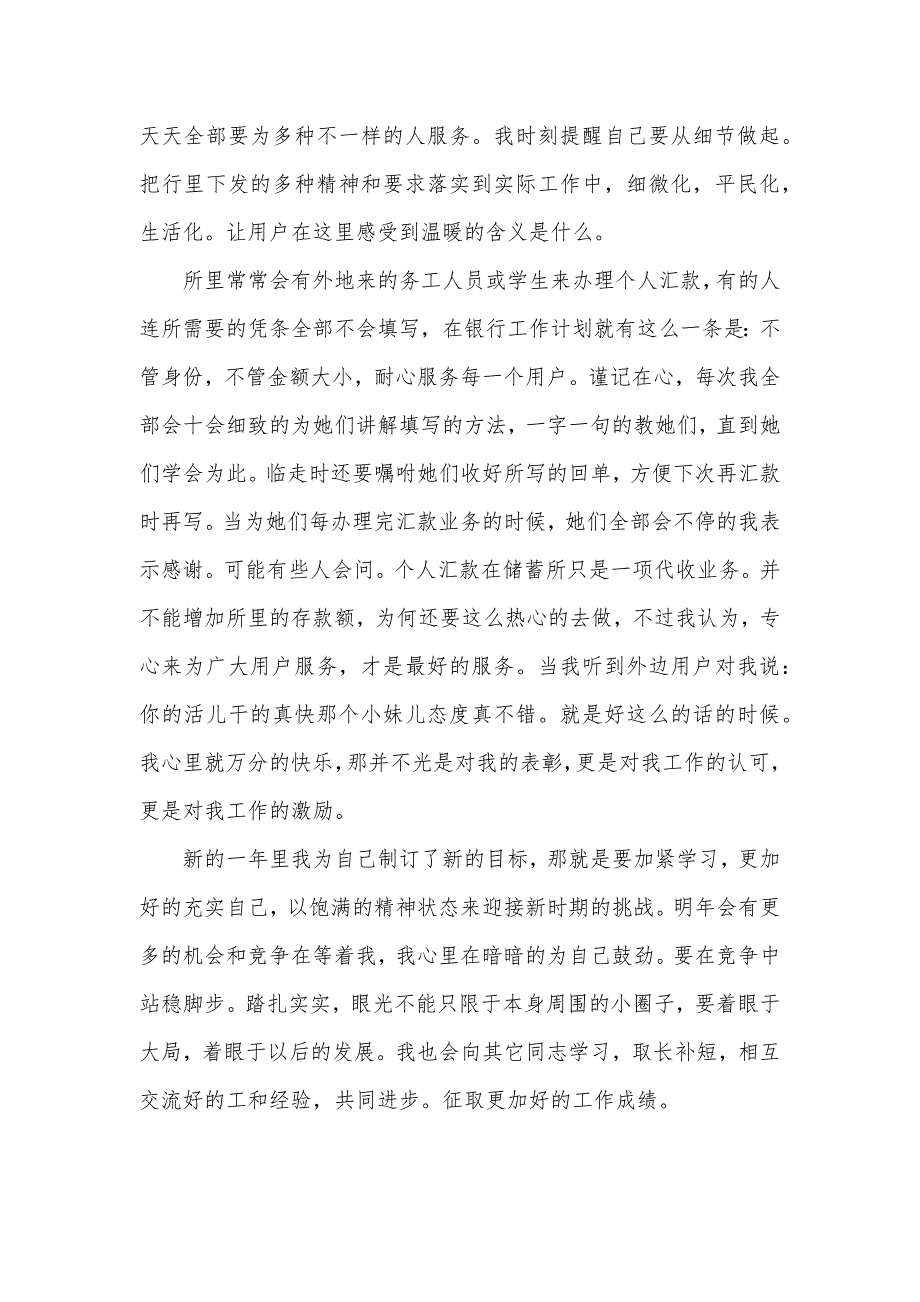 天天全部要为多种不一样的人服务。我时刻提醒自己要从细节做起。
把行里下发的多种精神和要求落实到实际工作中，细微化，平民化，
生活化。让用户在这里感受到温暖的含义是什么。
所里常常会有外地来的务工人员或学生来办理个人汇款，有的人
连所需要的凭条全部不会填写，在银行工作计划就有这么一条是：不
管身份，不管金额大小，耐心服务每一个用户。谨记在心，每次我全
部会十会细致的为她们讲解填写的方法，一字一句的教她们，直到她
们学会为此。临走时还要嘱咐她们收好所写的回单，方便下次再汇款
时再写。当为她们每办理完汇款业务的时候，她们全部会不停的我表
示感谢。可能有些人会问。个人汇款在储蓄所只是一项代收业务。并
不能增加所里的存款额，为何还要这么热心的去做，不过我认为，专
心来为广大用户服务，才是最好的服务。当我听到外边用户对我说：
你的活儿干的真快那个小妹儿态度真不错。就是好这么的话的时候。
我心里就万分的快乐，那并不光是对我的表彰，更是对我工作的认可，
更是对我工作的激励。
新的一年里我为自己制订了新的目标，那就是要加紧学习，更加
好的充实自己，以饱满的精神状态来迎接新时期的挑战。明年会有更
多的机会和竞争在等着我，我心里在暗暗的为自己鼓劲。要在竞争中
站稳脚步。踏扎实实，眼光不能只限于本身周围的小圈子，要着眼于
大局，着眼于以后的发展。我也会向其它同志学习，取长补短，相互
交流好的工和经验，共同进步。征取更加好的工作成绩。